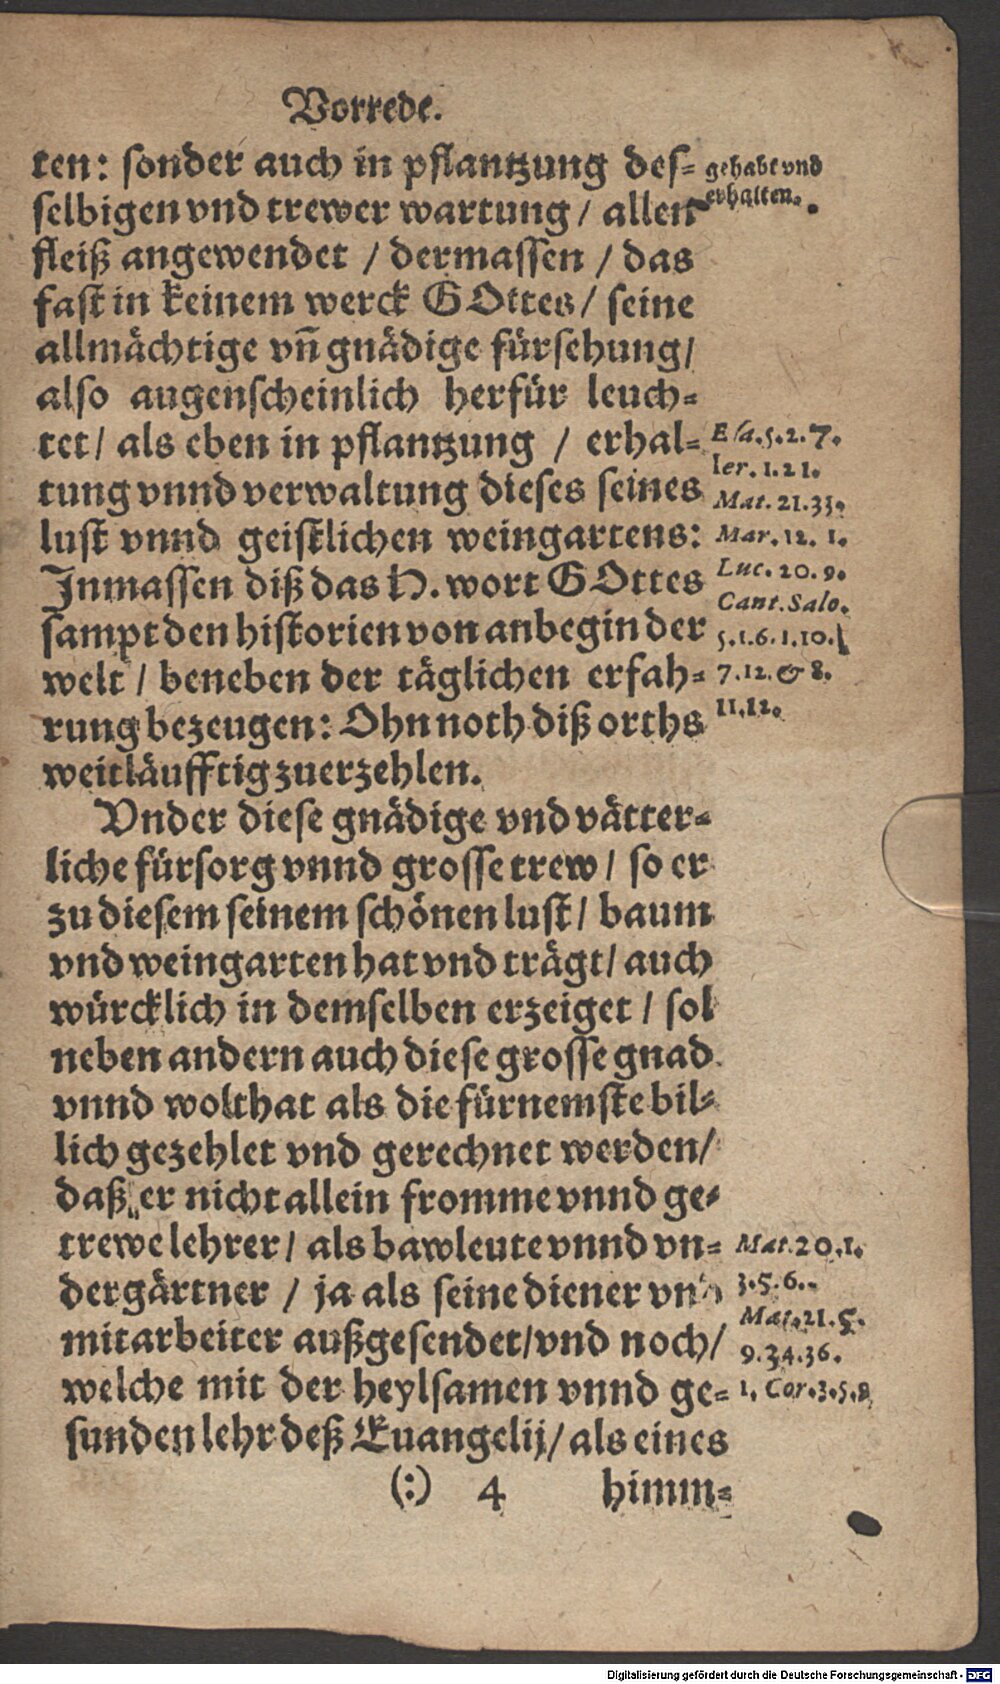 Vorrede.
ten: sonder auch in pflantzung des=
selbigen vnd trewer wartung / allen
fleiß angewendet / dermassen / das
fast in keinem werck GOttes / seine
allmächtige vn̄ gnädige fürsehung /
also augenscheinlich herfür leuch=
tet / als eben in pflantzung / erhal=
tung vnnd verwaltung dieses seines
lust vnnd geistlichen weingartens:
Inmassen diß das H. wort GOttes
sampt den historien von anbegin der
welt / beneben der täglichen erfah=
rung bezeugen: Ohn noth diß orths
weitläufftig zuerzehlen.
Vnder diese gnädige vnd vätter=
liche fürsorg vnnd grosse trew / so er
zu diesem seinem schönen lust / baum
vnd weingarten hat vnd trägt / auch
würcklich in demselben erzeiget / sol
neben andern auch diese grosse gnad
vnnd wolthat als die fürnemste bil=
lich gezehlet vnd gerechnet werden /
daß er nicht allein fromme vnnd ge=
trewe lehrer / als bawleute vnnd vn=
dergärtner / ja als seine diener vnd
mitarbeiter außgesendet / vnd noch /
welche mit der heylsamen vnnd ge=
sunden lehr deß Euangelij / als eines
(:) 4 himm=
gehabt vnd
erhalten.
Esa.5.2.7.
Ier.1.21.
Mat.21.33.
Mar.12.1.
Luc.20.9.
Cant.Salo.
5.1.6.1.10.
7.12. & 8.
11.12.
Mat.20.1.
3.5.6.
Mat.21.5.
9.34.36.
1. Cor.3.5.8
Digitalisierung gefördert durch die Deutsche Forschungsgemeinschaft - DFG